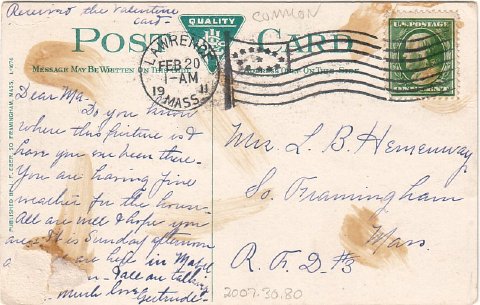 Received the Valentine
Card-
COMMON
QUALITY
POST CARD
MESSAGE MAY BE WRITTEN ON THIS SIDE
ON THIS SIDE
LAWRENCE
FEB 20
1-AM
19 11
MASS.
U.S. POSTAGE
Dear Ma-
Do you know
where this picture is &
have you ever been there.
You are having fine
weather for the house-
All are well & hope you
are. It is Sunday afternoon
are here in
all are talking
much love
Gertrude-
Mrs. L. B. Hemenway
So. Framingham
Mass.
R. F. D. #3
2007.30.80
SO. FRAMINGHAM, MASS.
PUBLISHED BY